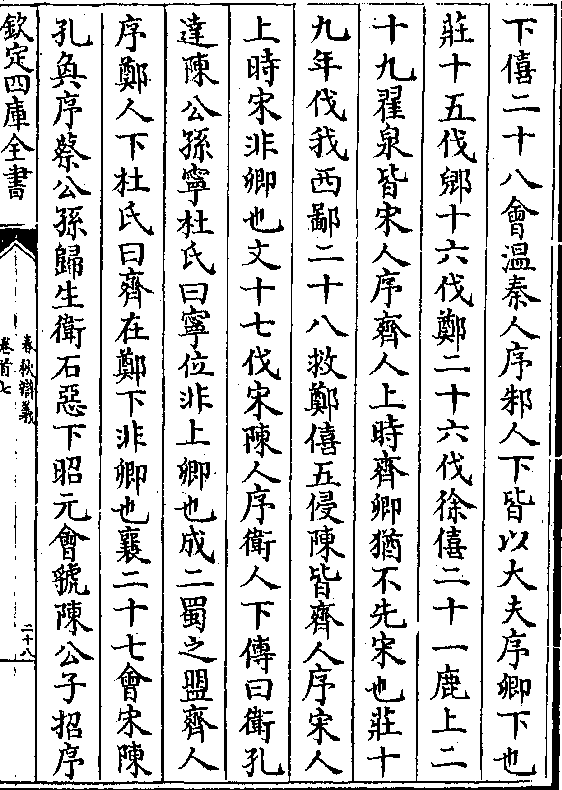 下僖二十八會溫秦人序邾人下皆以大夫序卿下也
莊十五伐郷十六伐鄭二十六伐徐僖二十一鹿上二
十九翟泉皆宋人序齊人上時齊卿猶不先宋也莊十
九年伐我西鄙二十八救鄭僖五侵陳皆齊人序宋人
上時宋非卿也文十七伐宋陳人序衛人下傳曰衛孔
達陳公孫寧杜氏曰寧位非上卿也成二蜀之盟齊人
序鄭人下杜氏曰齊在鄭下非卿也襄二十七會宋陳
孔奐序蔡公孫歸生衛石惡下昭元會虢陳公子招序
欽定四庫全書
春秋辯義
卷首七
二十八